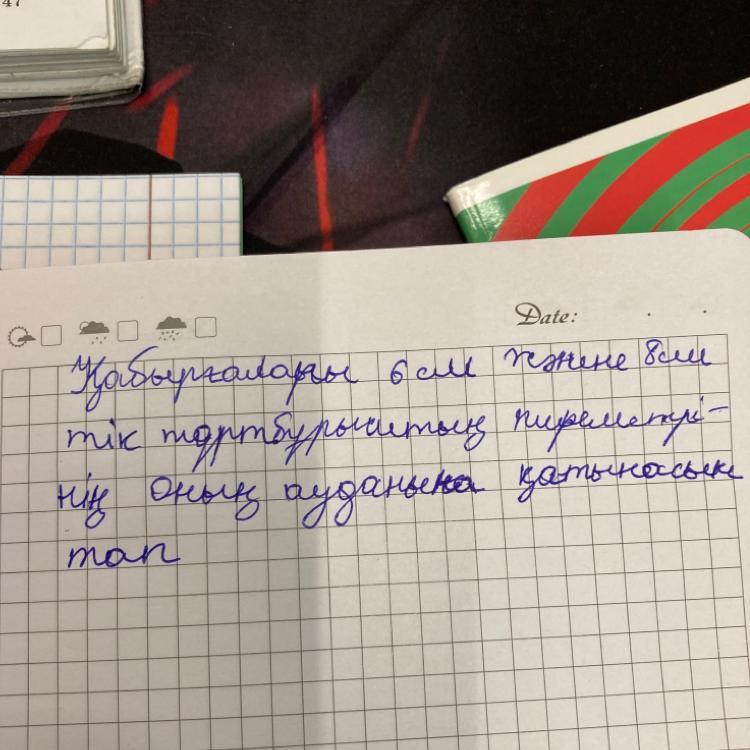 47
Date:
Қабырғалары 6 см және 8 см
тік төртбұрыштың пиреметрі-
нің оның ауданына қатынасын
тап